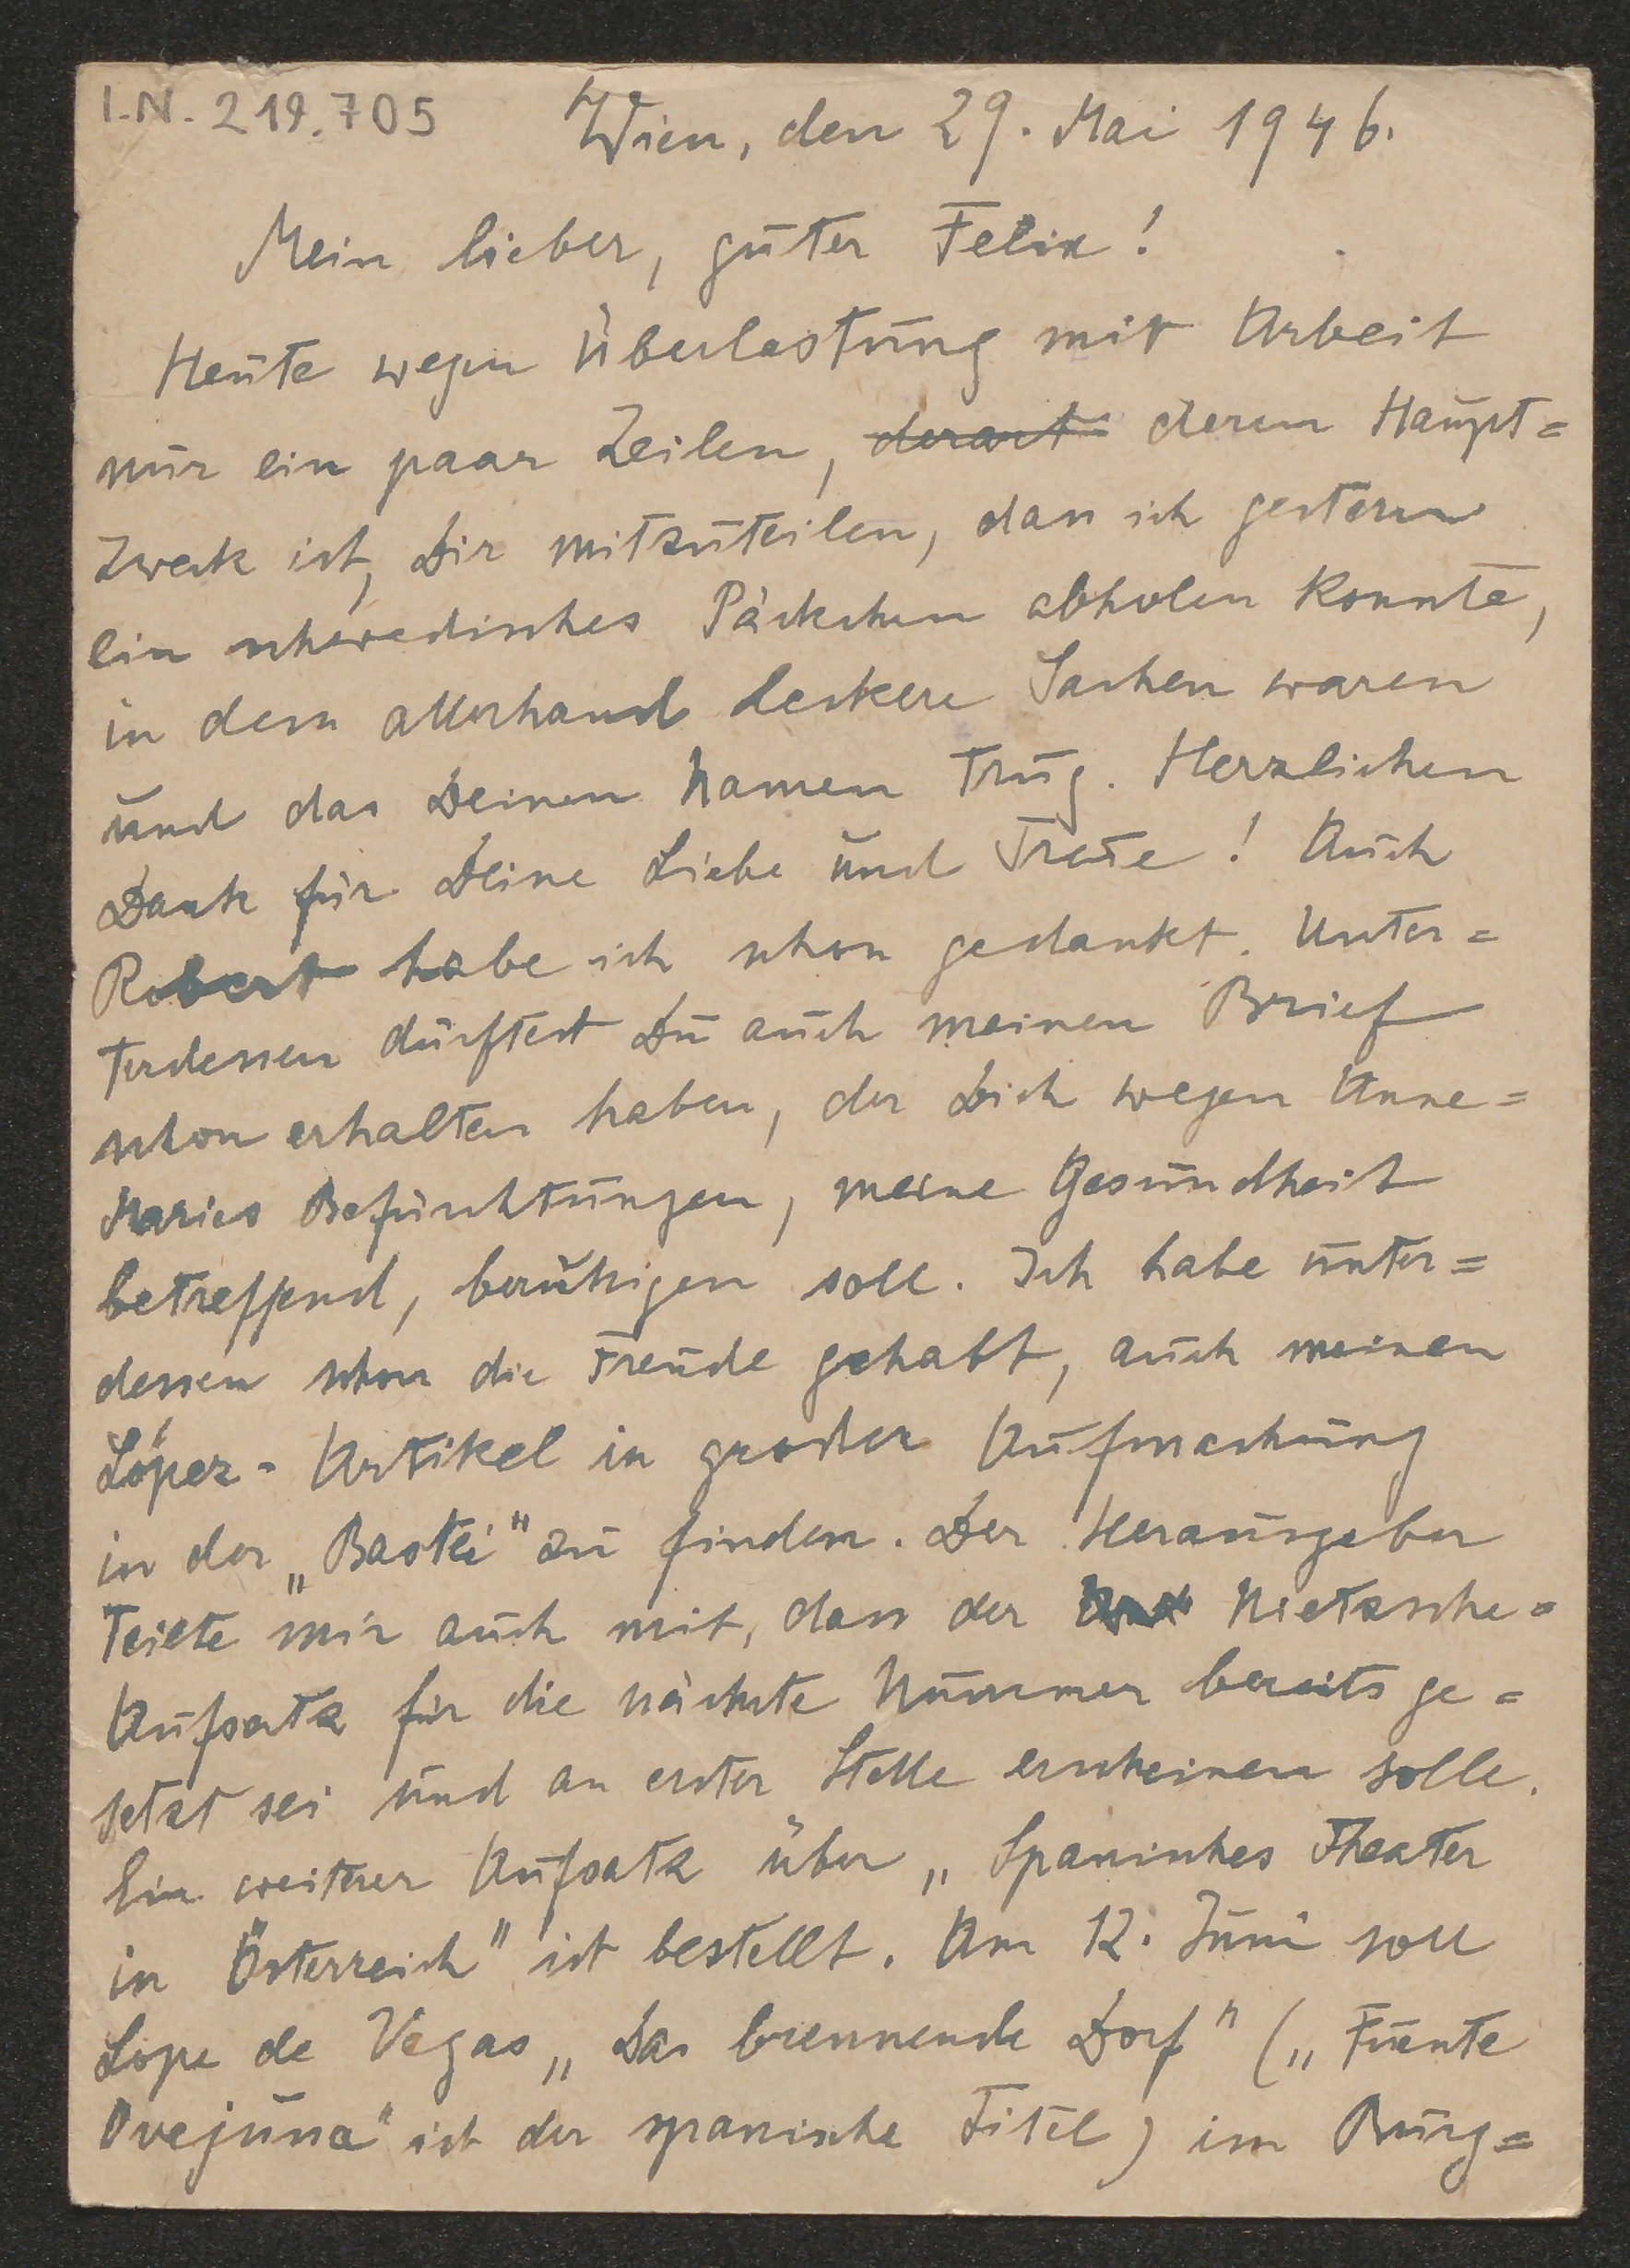 I.N. 219.705
Wien, den 29. Mai 1946.
Mein lieber, guter Felix!
Heute wegen Überlastung mit Arbeit
nur ein paar Zeilen, derart deren Haupt=
zweck ist, Dir mitzuteilen, dass ich gestern
ein schwedisches Päckchen abholen konnte,
in dem allerhand leckere Sachen waren
und das Deinen Namen trug. Herzlichen
Dank für Deine Liebe und Treue! Auch
Robert habe ich schon gedankt. Unter=
terdessen dürftest Du auch meinen Brief
schon erhalten haben, der Dich wegen Anne=
Maries Befürchtungen, meine Gesundheit
betreffend, beruhigen soll. Ich habe unter=
dessen schon die Freude gehabt, auch meinen
López-Artikel in großer Aufmachung
in der „Bastei" zu finden. Der Herausgeber
teilte mir auch mit, dass der Nietzsche=
Aufsatz für die nächste Nummer bereits ge=
setzt sei und an erster Stelle erscheinen solle.
Ein weiterer Aufsatz über „Spanisches Theater
in Österreich" ist bestellt. Am 12. Juni soll
Lope de Vegas „Das brennende Dorf" („Fuente
Ovejuna" ist der spanische Titel) im Burg=